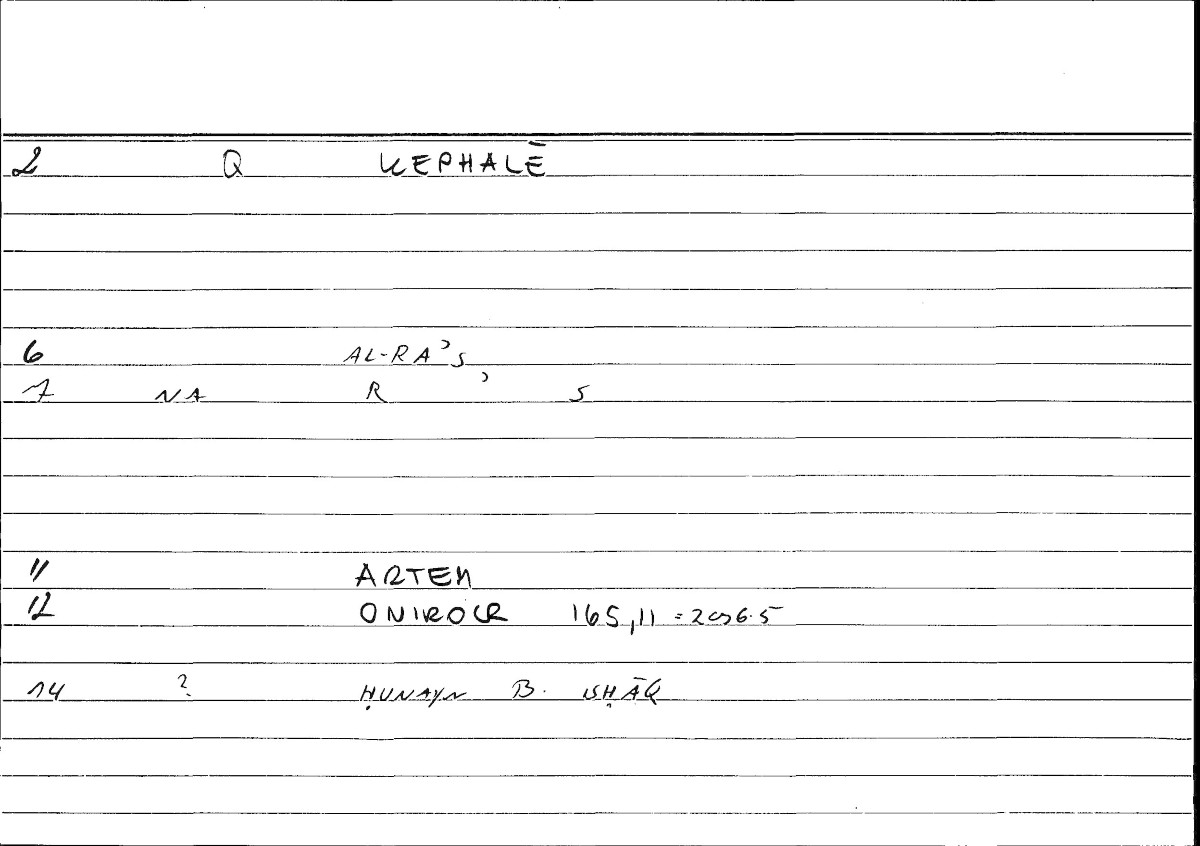 2 Q KEPHALĒ
6 AL-RAʾS
7 NA R ʾ S
11 ARTEM
12 ONIROCR 165,11 = 296.5
14 ? ḤUNAYN B. ISḤĀQ